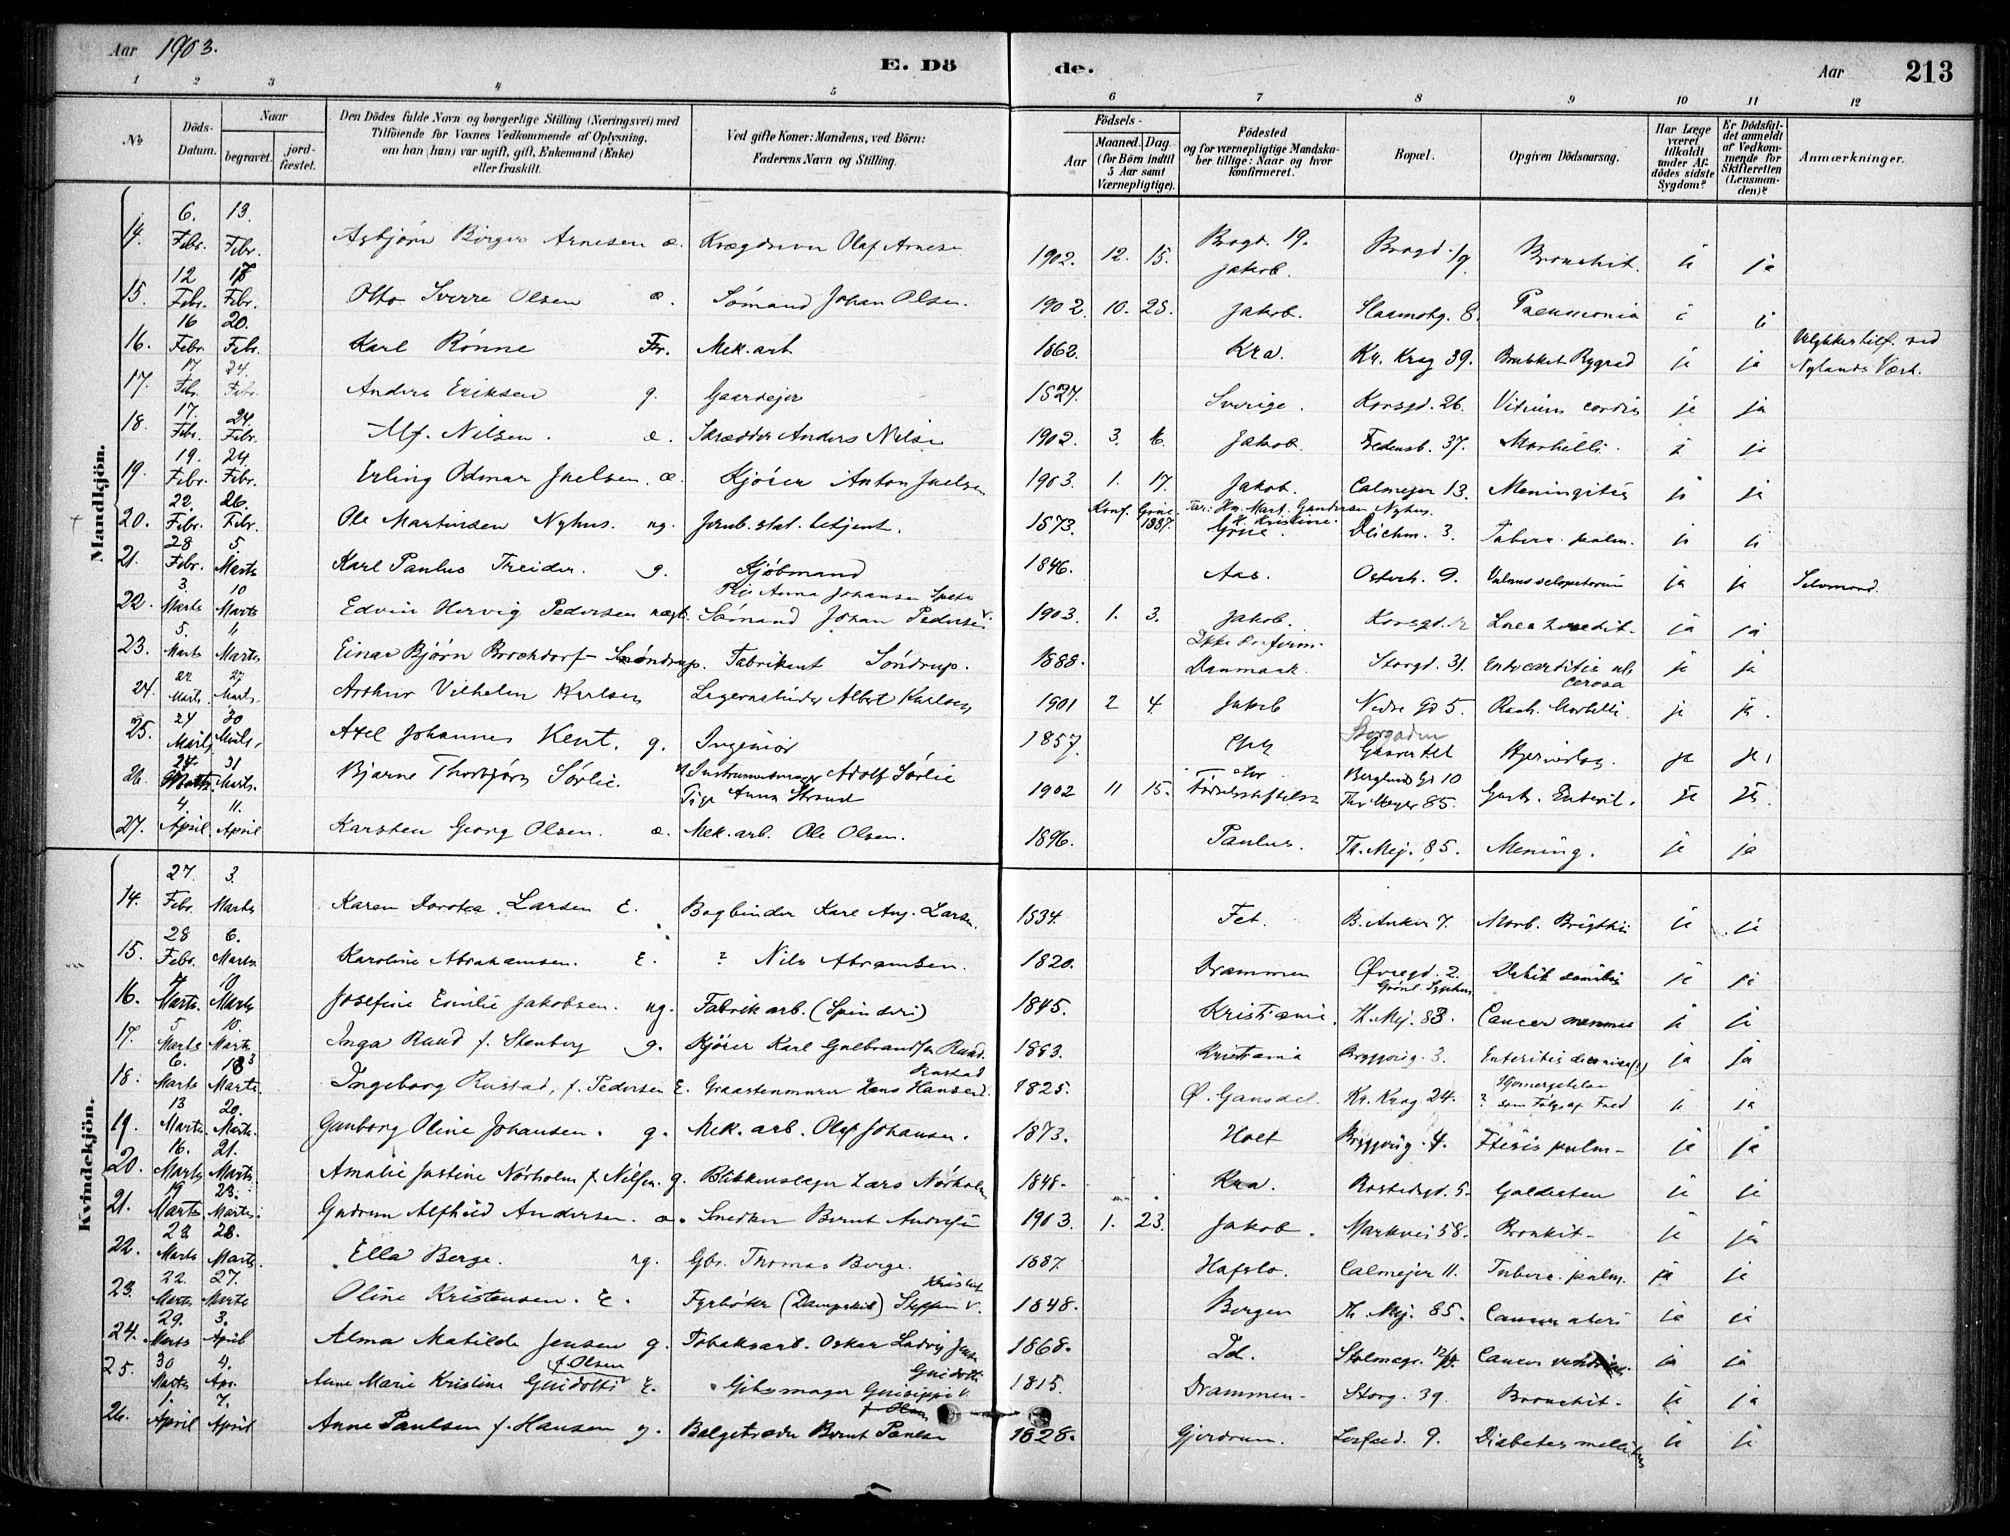 Aar 1903.
E. Döde.
Aar 213
1 2 3 4 5 6 7 8 9 10 11 12
No
Döds-Datum.
Naar
begravet.
jordfæstet.
Den Dödes fulde Navn og borgerlige Stilling (Næringsvei) med
Tilföiende for Voxnes Vedkommende af Oplysning,
om han (hun) var ugift, gift, Enkemand (Enke)
eller fraskilt.
Ved gifte Koner: Mandens, ved Börn:
Faderens Navn og Stilling.
Födsels-
Aar
Maaned. Dag
(for Börn indtil
5 Aar samt
Værnepligtige).
Födested
og for værnepligtige Mandska-
ber tillige: Naar og hvor
konfirmeret.
Bopæl.
Opgiven Dödsaarsag.
Har Læge
været
tilkaldt
under Af-
dödes sidste
Sygdom?
Er Dödsfal-
det anmeldt
af Vedkom-
mende for
Skifteretten
(Lensman-
den)?
Anmærkninger.
Mandkjön.
14. 6. Febr. 13. Febr. Asbjørn Birger Arnesen æ. Olaf Arnesen 1902. 12. 15. Bragd. 19. Jakob. Bragd. 19 Bronchit. ja
15. 12 Febr. Febr. Otto Sverre Olsen æ. Sømand Johan Olsen. 1902. 10. 25. Jakob. 8. Pneumonia
16. 16 Febr. 20. Febr. Karl Rønne Fr. Mek. arb 1862. Kra. Kr. Krag 39. Brukket Rygrad je ja Ulykkestilf. ved Nylands Værk.
17. 17 Febr. 24. Febr. Anders Eriksen g. Gaardejer 1827. Sverige. Korsgd. 26. Vitium cordis je ja
18. 17. Febr. 24. Febr. Alf. Nilsen. æ. Skrædder Anders Nilsen 1902. 3. Jakob. Fredensb. 37. Morbilli. ja
19. 19. Febr. 24. Febr. Erling Odmar Juelsen. æ. Kjører Anton Juelsen 1903. 1. 17. Jakob. Calmejer 13. Meningitis ja
20. 22. Febr. 26. Febr. Ole Martinsen Nyhus. ug. Jernb. stat. betjent. 1873. Konf. Grue 1887. Grue. Deichm. 3. Tuberc. pulm.
21. 28 Febr. 5. Marts Karl Paulus Treider. g. Kjøbmand 1846. Aas. Osterh. 9. Vulnus sclopetarium ja ja Selvmord.
22. 3. Marts 10 Marts Edvin Hervig Pedersen uægt. Pige Anna Johansen Sømand Johan Pedersen 1903. 1. 3. Jakob. Korsgd. Lues heredit. ja ja
23. 5. Marts 11 Marts Einar Bjørn Brockdorf-Söndrup. Fabrikant Söndrup. 1888. Ikke konfirm. Danmark. Storgd. 31. Endocarditis ulcerosa je ja
24. 22 Marts. 27 Marts. Arthur Vilhelm Karlsen Lagermskinder Albert Karlsen 1901 2 4. Jakob Nedre Gd 5. Morbilli. je ja.
25. 24 Marts 30 Marts. Axel Johannes Kent. g. Ingeniør 1857. Storgaden Hjerneslag. ja je.
26. 24. Marts. 31 Marts. Bjarne Thorbjörn Sörlie. Instrumentmager Adolf Sörlie Pige Anna Strand 1902 11 15. Chr. Fødselsstiftelsen Berglund Gd 10 Th. Meyer 85. Gastr. Enterit. je ja.
27. 4. April. 11. April Karsten Georg Olsen. æ. Mek. arb. Ole Olsen. 1896. Paulus. Th. Mej. 85. Mening. je ja
Kvindekjön.
14. 27. Febr. 3. Marts Karen Dorotea Larsen E. Bogbinder Karl Aug. Larsen. 1834. Fet. B. Anker 7. Morb. Brigthii je je
15. 28 Febr. 6. Marts Karoline Abrahamsen. E. ? Nils Abramsen. 1820. Drammen Øvregd. 2. Debil. senilis je je
16. 4 Marts. 10 Marts Josefine Emilie Jakobsen. ug. Fabrikarb. (Spinderi) 1845. Kristiania. Th. Mej. 83. Cancer mammae je je
17. 5 Marts 10. Marts Inga Ruud f. Stenberg g. Kjører Karl Gulbrandsen Ruud. 1853. Kristiania Bryggerig. 3. Enteritis ja ja
18. 6. Marts Marts. Ingeborg Rustad, f. Pedersen E. Graastensmurer Hans Hansen Rustad 1825. Ø. Gausdal. Kr. Krag 24. ? som Følge af Fald ja
19. 13 Marts. 20. Marts. Gunborg Oline Johansen. g. Mek. arb. Olaf Johansen. 1873. Holt Bryggerig. 4. Ftisis pulm- je ja
20. 16. Marts 21. Marts. Amalie Justine Nörholm f. Nilsen. g. Blikkenslager Lars Nörholm 1848. Kra. Rostedsgd. 5. Galdesten je je
21. 19 Marts 23. Marts. Gudrun Alfhild Andersen. æ. Snedker Bernt Andersen 1903. 1. 23. Jakob. Markvei 58. Bronkit- je ja
22. 23. Marts 28. Marts. Ella Berge. ug. Gbr. Thomas Berge. 1887. Hafslo. Calmejer 11. Tuberc. pulm. ja je
23. 22. Marts 27. Marts Oline Kristensen. E. Fyrbøter (Dampskib) Steffen Kristensen 1848. Bergen Th. Mej. 85. Cancer uteri ja ja
24. 29. Marts 3. April Alma Matilde Jensen g. Tobaksarb. Oskar Ludvig Jensen 1868. Id. Cancer ja ja
25. 30 Marts 4. Apr. Anne Marie Kristine Guidotti f. Olsen E. Gibsmager Guiseppi Guidotti 1815. Drammen- Storg. 39. Bronchit- je ja
26. 1. April 7. April Anne Paulsen f. Hansen g. Belgetræder Bernt Paulsen 1828. Gjerdrum. 9. Diabetes mellitus je